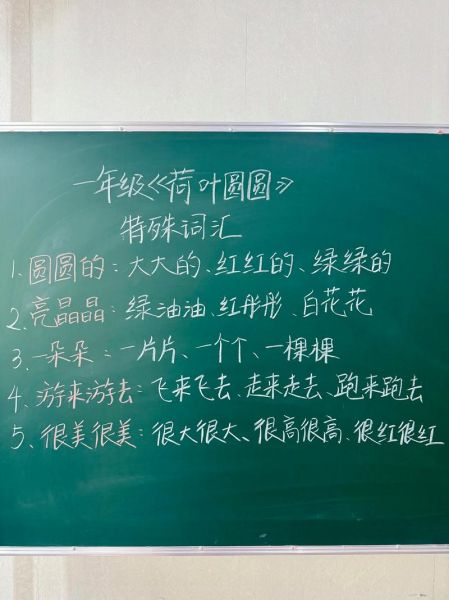 一年级《荷叶圆圆》
特殊词汇
1、圆圆的：大大的、红红的、绿绿的
2、亮晶晶：绿油油、红彤彤、白花花
3、一朵朵：一片片、一个个、一棵棵
4、游来游去：飞来飞去、走来走去、跑来跑去
5、很美很美：很大很大、很高很高、很红很红